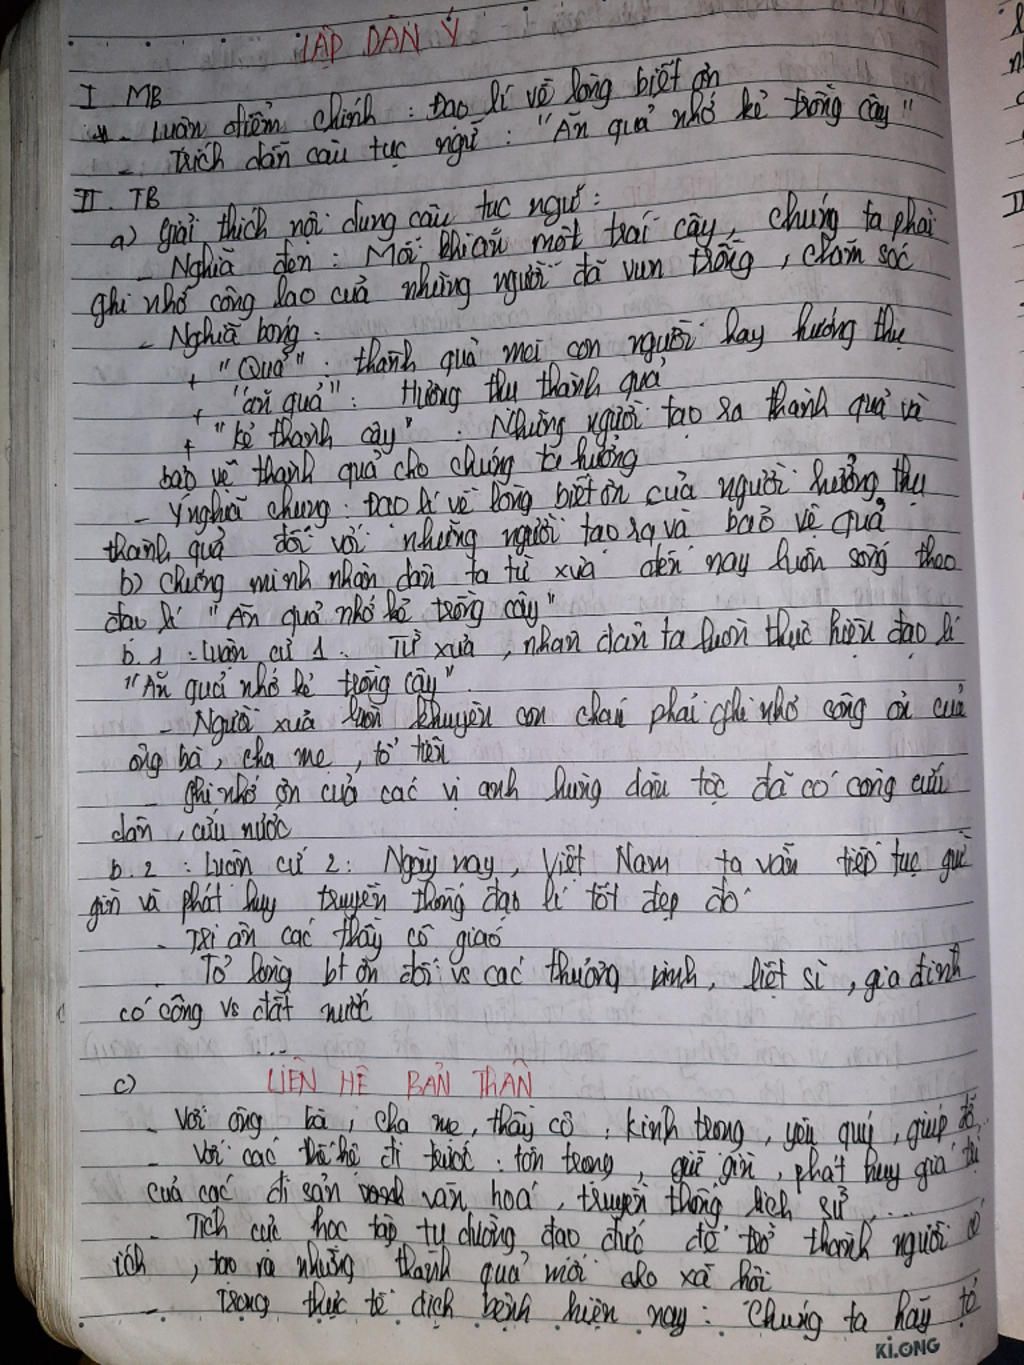 LẬP DÀN Ý
I MB
- Luận điểm chính : Đạo lí về lòng biết ơn
- Trích dẫn câu tục ngữ : "Ăn quả nhớ kẻ trồng cây"
II. TB
a) Giải thích nội dung câu tục ngữ :
- Nghĩa đen : Mỗi khi ăn một trái cây, chúng ta phải
ghi nhớ công lao của những người đã vun trồng, chăm sóc
- Nghĩa bóng :
+ "Quả" : thành quả mà con người hay hưởng thụ
+ "ăn quả" : Hưởng thụ thành quả
+ "kẻ thành cây" : Những người tạo ra thành quả và
bảo vệ thành quả cho chúng ta hưởng
- Ý nghĩa chung : Đạo lí về lòng biết ơn của người hưởng thụ
thành quả đối với những người tạo ra và bảo vệ quả
b) Chứng minh nhân dân ta từ xưa đến nay luôn sống theo
đạo lí "Ăn quả nhớ kẻ trồng cây"
b.1 : Luận cứ 1. Từ xưa, nhân dân ta luôn thực hiện đạo lí
"Ăn quả nhớ kẻ trồng cây".
- Người xưa luôn khuyên con cháu phải ghi nhớ công ơn của
ông bà, cha mẹ, tổ tiên
- Ghi nhớ ơn của các vị anh hùng dân tộc đã có công cứu
dân, cứu nước
b.2 : Luận cứ 2 : Ngày nay, Việt Nam ta vẫn tiếp tục giữ
gìn và phát huy truyền thống đạo lí tốt đẹp đó
- Tri ân các thầy cô giáo
- Tỏ lòng bt ơn đối vs các thương binh, liệt sĩ, gia đình
có công vs đất nước
...
c) LIÊN HỆ BẢN THÂN
- Với ông bà, cha mẹ, thầy cô : kính trọng, yêu quý, giúp đỡ...
- Với các thế hệ đi trước : tôn trọng, giữ gìn, phát huy giá trị
của các di sản văn hoá, truyền thống lịch sử ....
- Tích cực học tập tu dưỡng đạo đức để trở thành người có
ích, tạo ra những thành quả mới cho xã hội
- Trong thực tế dịch bệnh hiện nay : Chúng ta hãy tỏ
KI.ONG